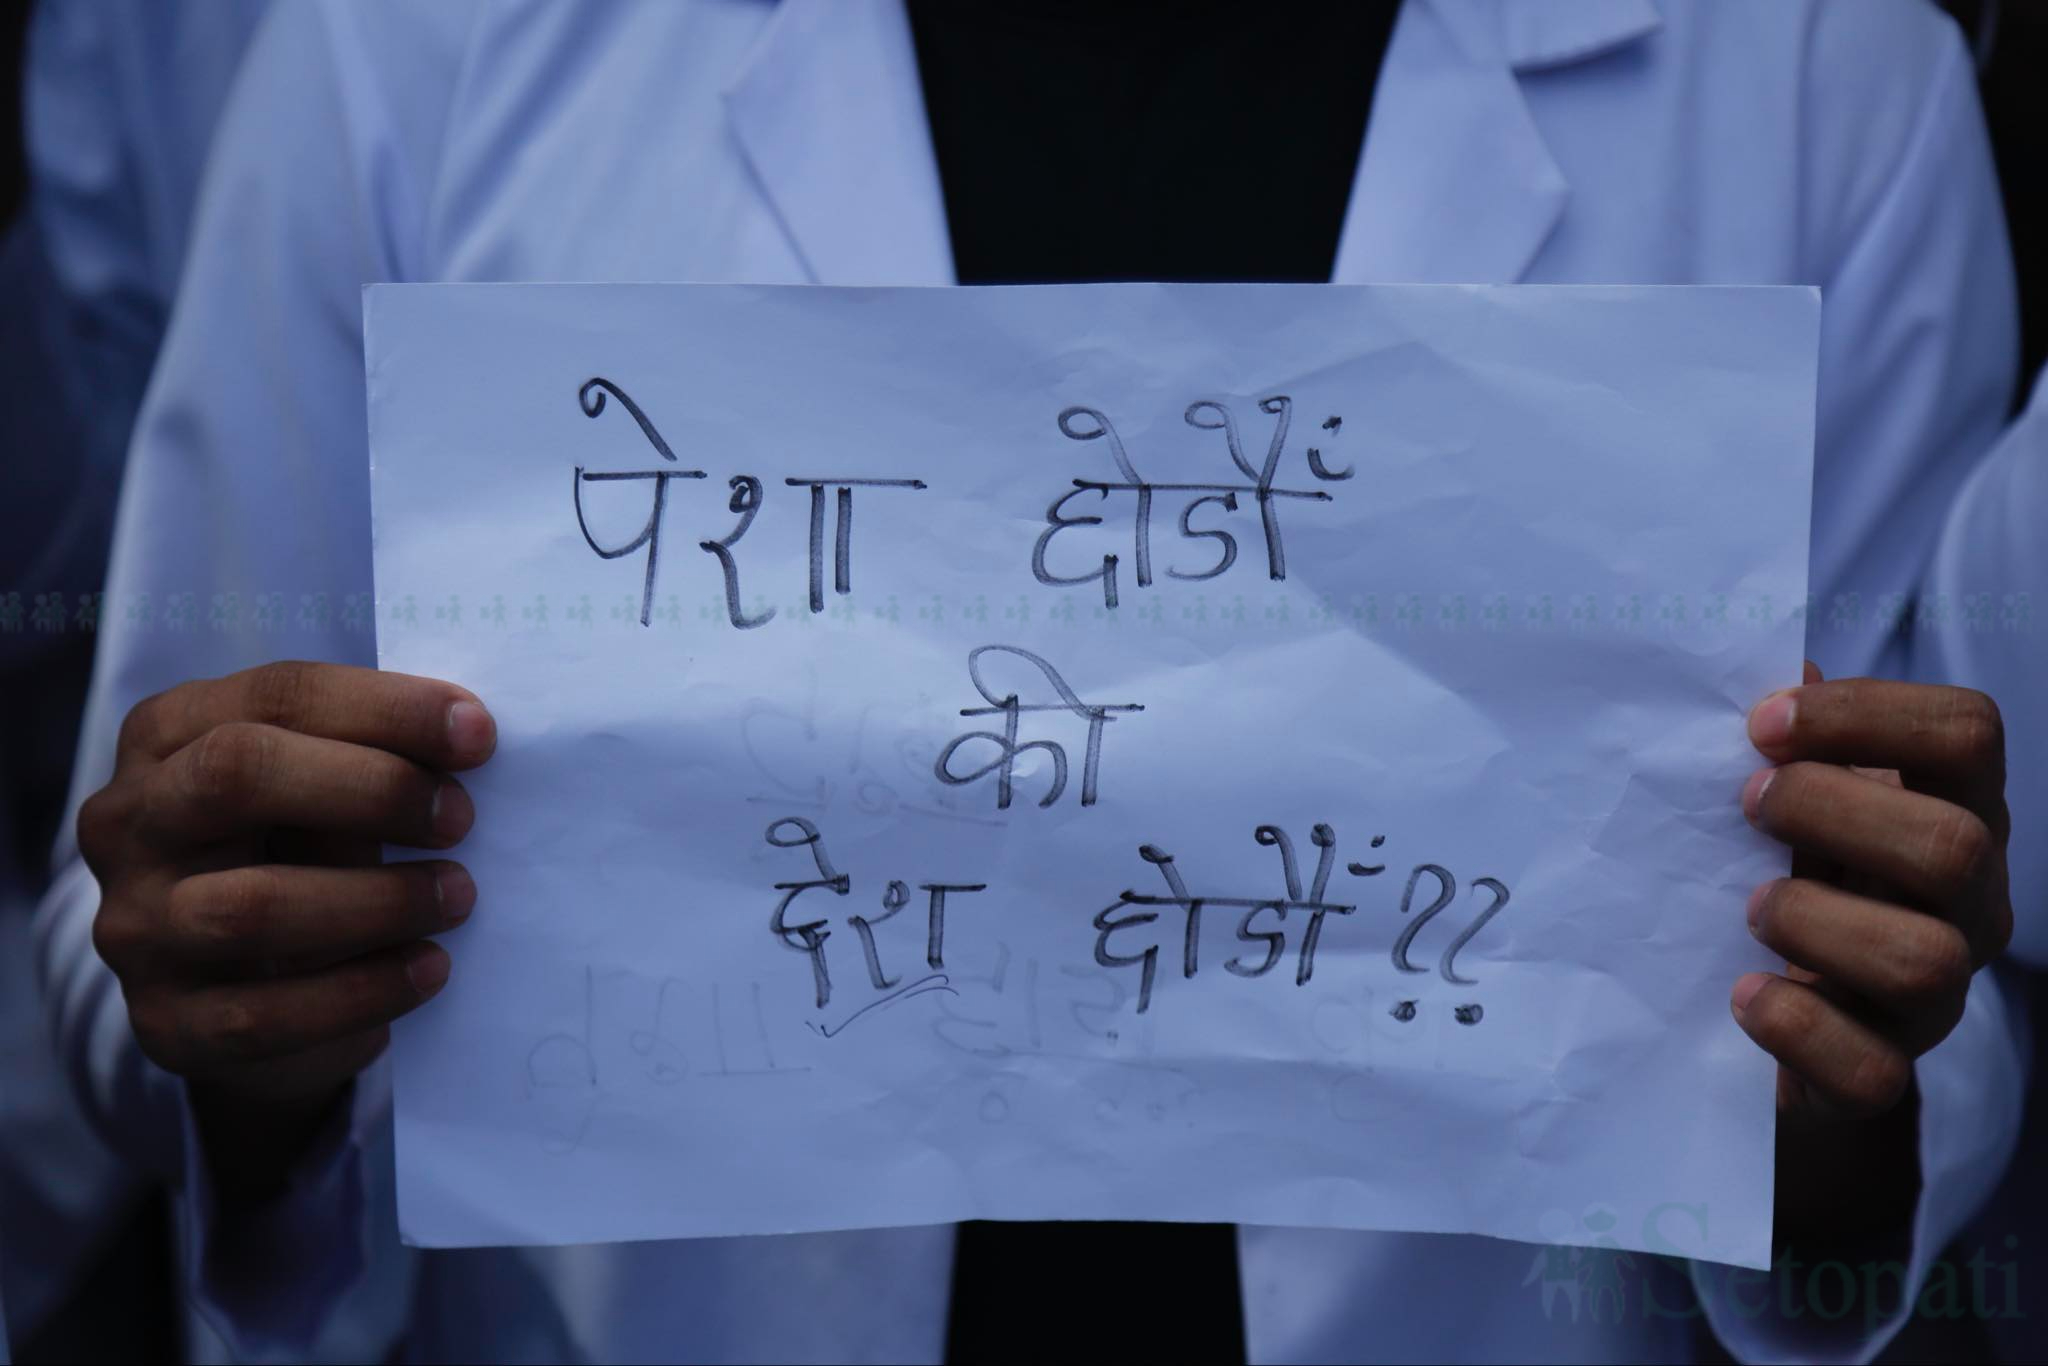 पेशा छोडौँ
की
देश छोडौँ??
Setopati